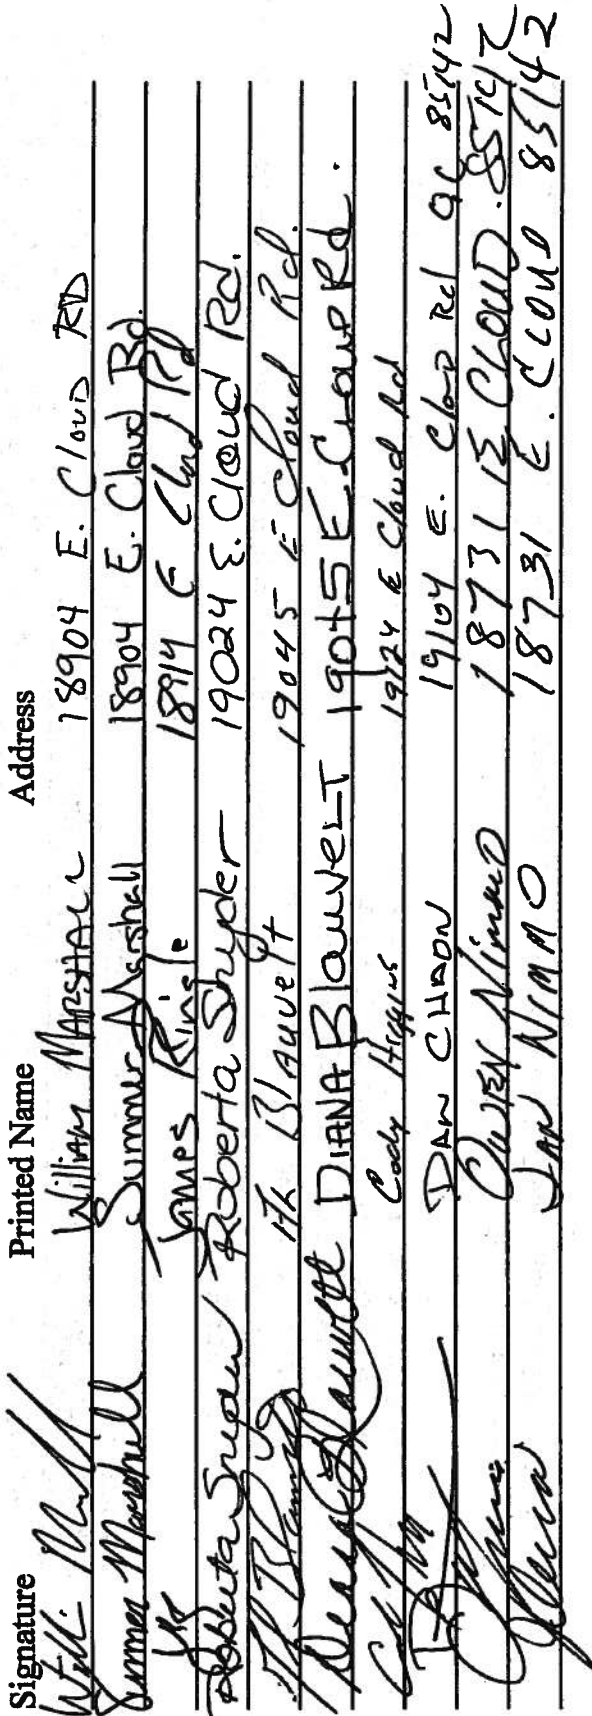 Signature Printed Name Address
William Marshall 18904 E. Cloud RD
Summer Marshall Summer Marshall 18904 E. Cloud Rd.
James Ringle 18914 E Cloud Rd
Roberta Snyder Roberta Snyder 19024 E. Cloud Rd.
Blauvelt 19045 E Cloud Rd.
Diana Blauvelt DIANA Blauvelt 19045 E. Cloud Rd.
Cody Higgins 19124 E Cloud Rd
DAN CHAON 19104 E. Cloud Rd QC 85142
OWEN Nimmo 18731 E CLOUD. 85142
JAN NIMMO 18731 E. CLOUD 85142